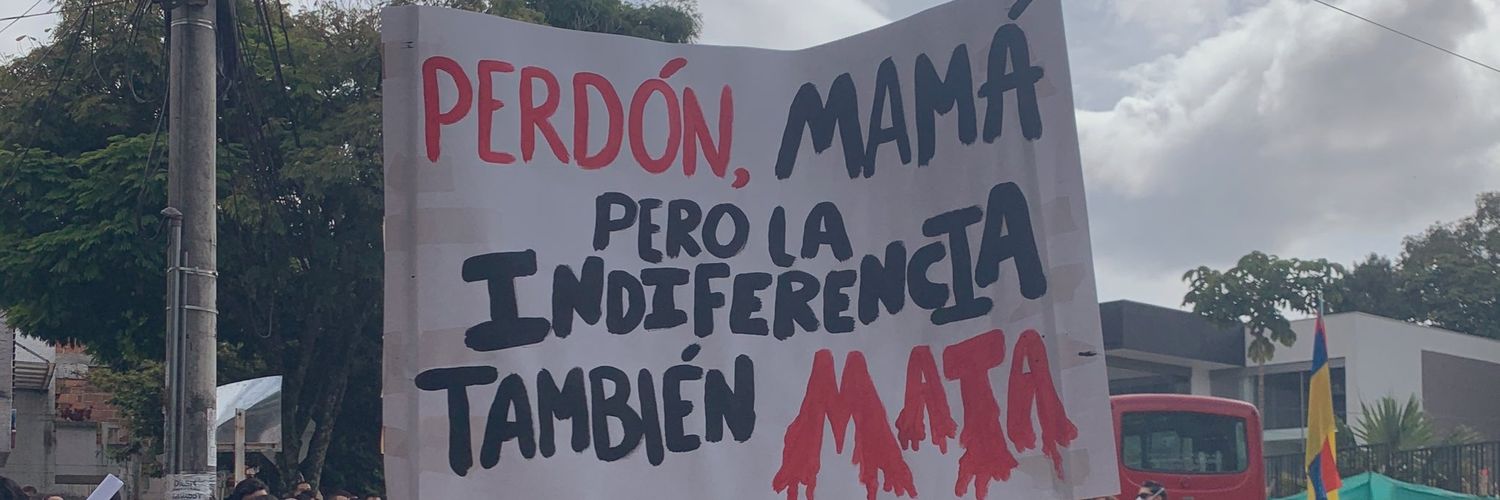 PERDÓN, MAMÁ
PERO LA
INDIFERENCIA
TAMBIÉN MATA